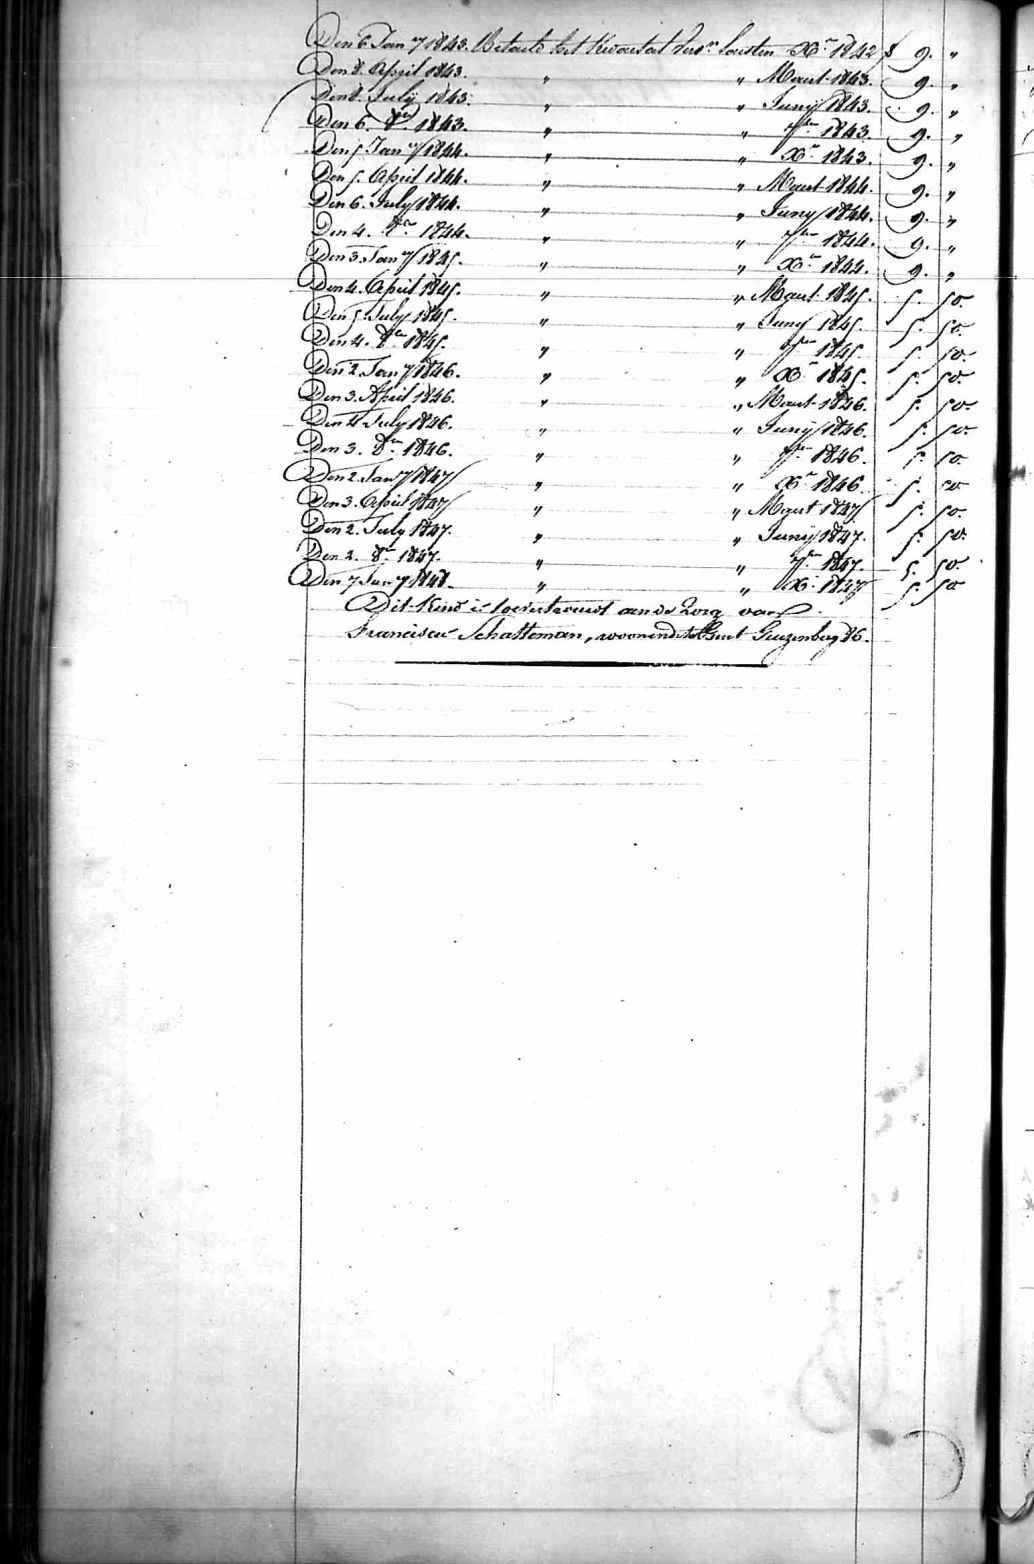 Den 6 Jan.ry 1843. Betaald het Kwartaal sedert laesten Xber 1842 f 9. "
Den 8. April 1843. " " Maart 1843. 9. "
Den 8. July 1843. " " Juny 1843. 9. "
Den 6. 8ber 1843. " " 7ber 1843. 9. "
Den 5 Jan.ry 1844. " " Xber 1843. 9. "
Den 5. April 1844. " " Maart 1844. 9. "
Den 6. July 1844. " " Juny 1844. 9. "
Den 4. 8ber 1844. " " 7ber 1844. 9. "
Den 3. Jan.ry 1845. " " Xber 1844. 9. "
Den 4. April 1845. " " Maart 1845. 5. 50.
Den 5 July 1845. " " Juny 1845. 5. 50.
Den 4. 8ber 1845. " " 7ber 1845. 5. 50.
Den 2 Jan.ry 1846. " " Xber 1845. 5. 50.
Den 3. April 1846. " " Maart 1846. 5. 50.
Den 4 July 1846. " " Juny 1846. 5. 50.
Den 3. 8ber 1846. " " 7ber 1846. 5. 50.
Den 2. Jan.ry 1847 " " Xber 1846. 5. 50
Den 3. April 1847 " " Maart 1847 5. 50.
Den 2. July 1847. " " Juny 1847. 5. 50.
Den 2. 8ber 1847. " " 7ber 1847. 5. 50
Den 7 Jan.ry 1848. " " Xber 1847 5. 50
Dit Kind is toevertrouwt aen de Zorg van
Francisca Schatteman, woonende te Gent Geuzenberg 26.